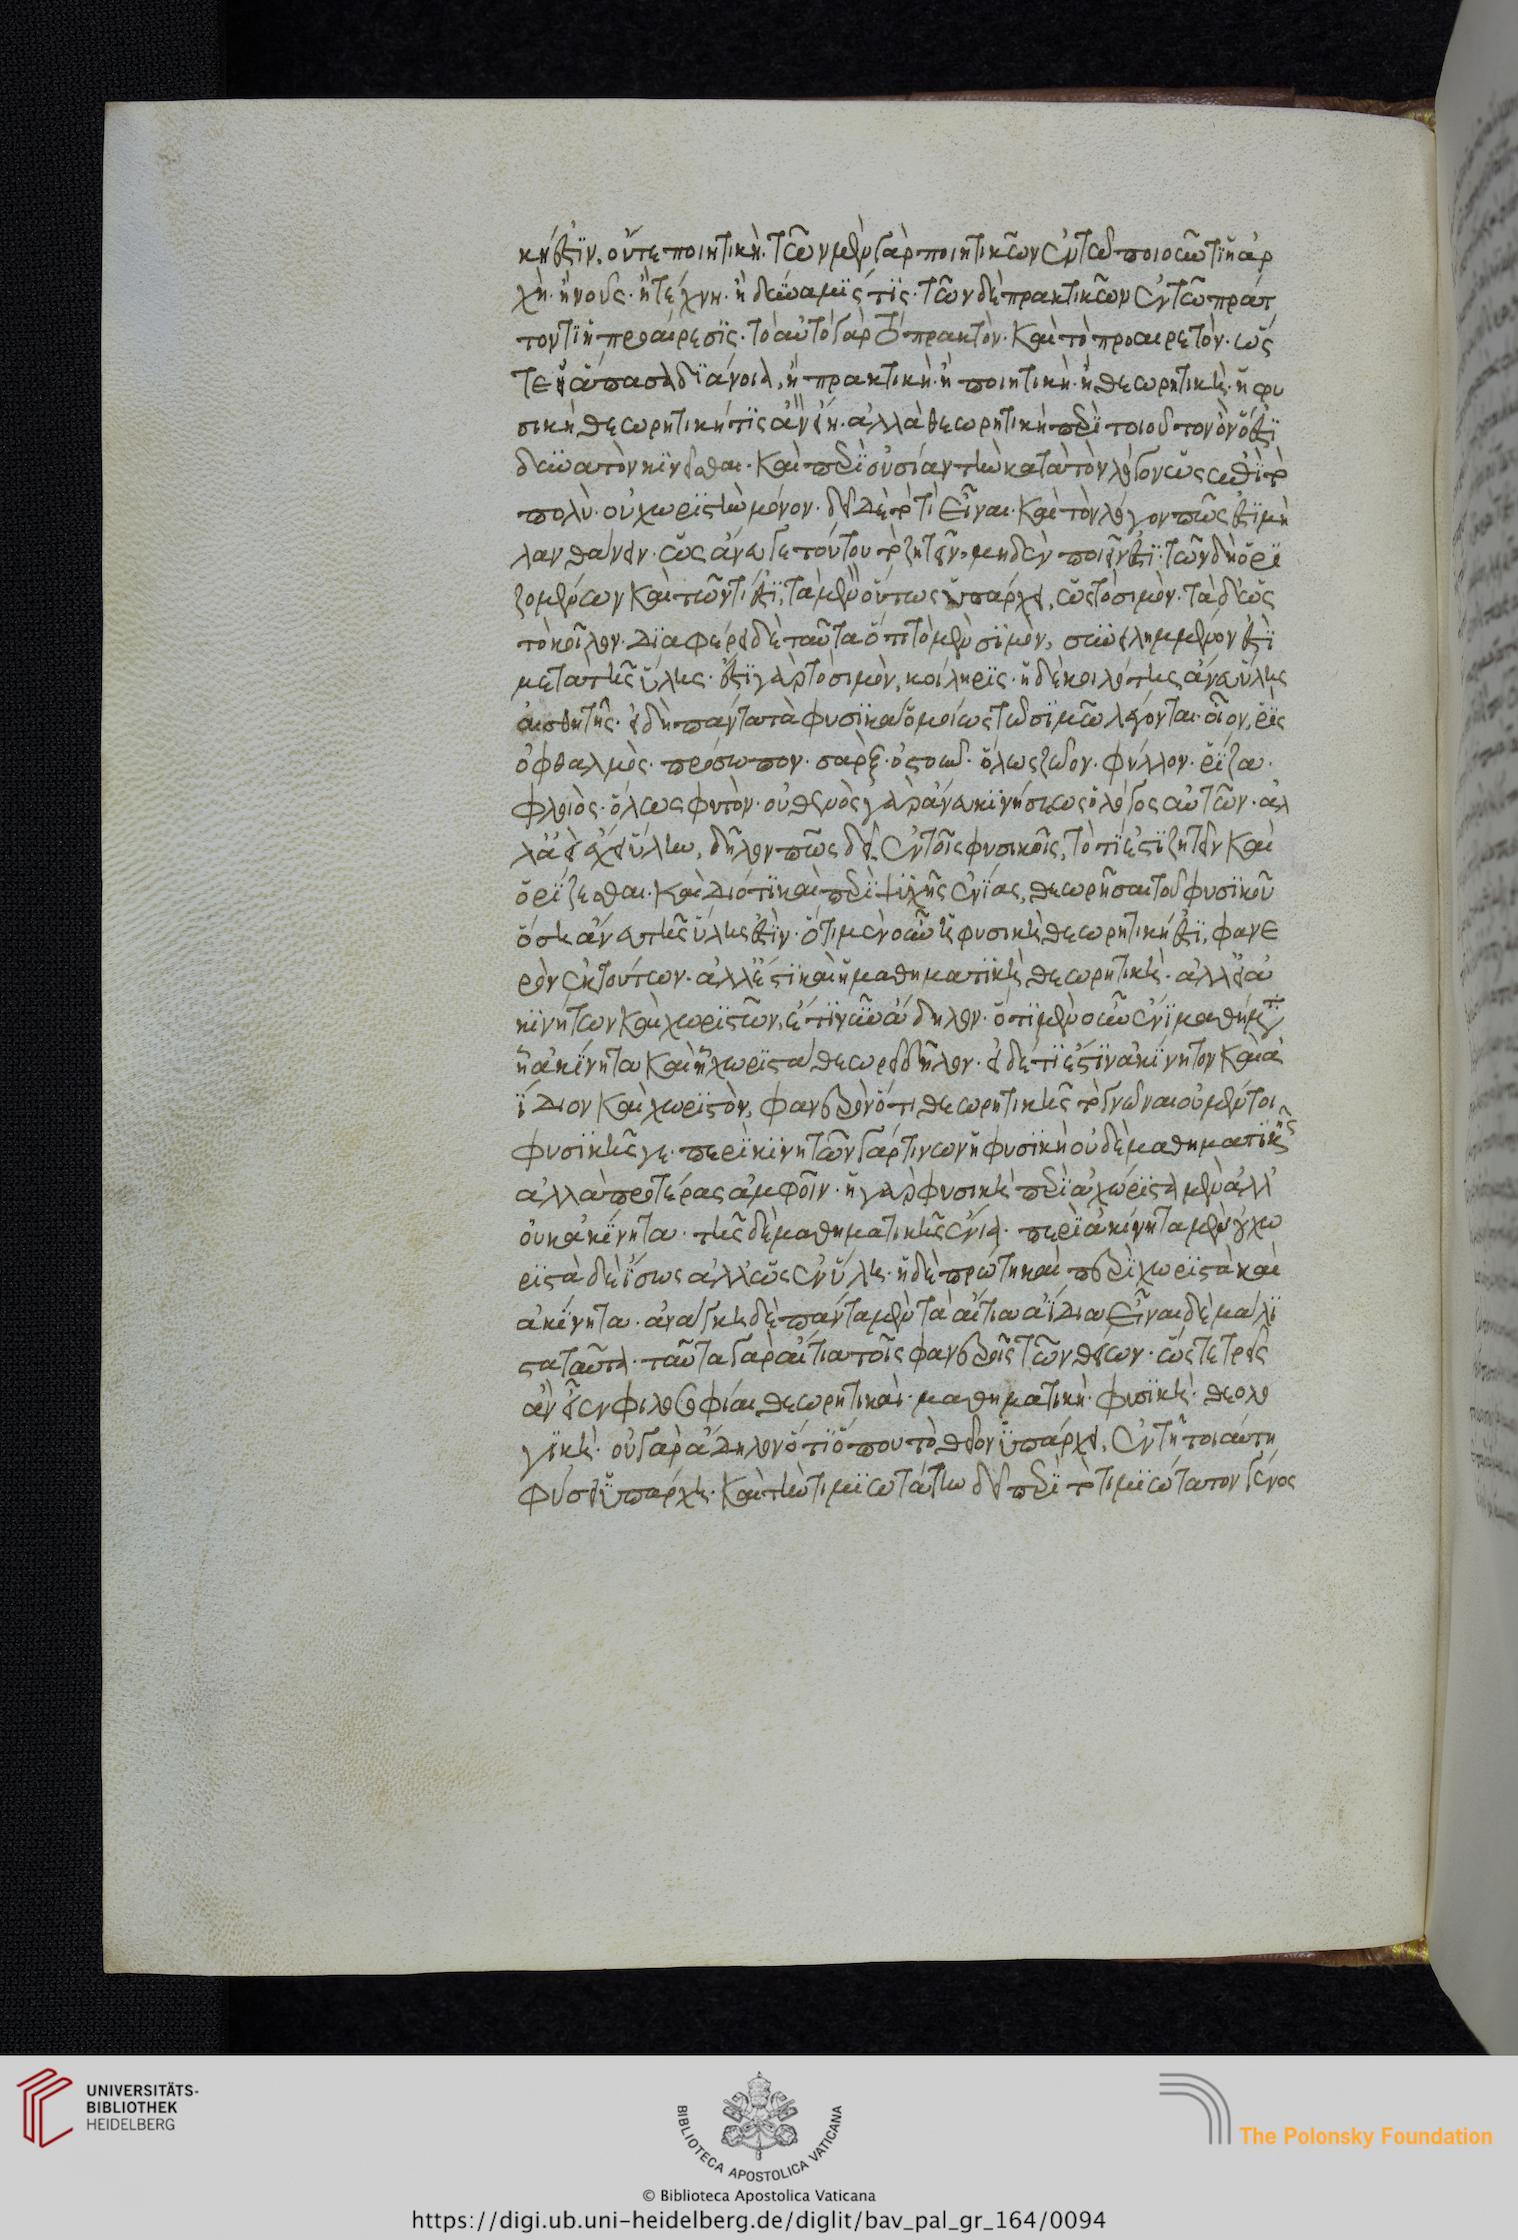 κή ἐστιν. οὔτε ποιητικὴ. τῶν μὲν γὰρ ποιητικῶν ἐν τῶ ποιοῦντι ἡ ἀρ
χὴ. ἢ νοῦς. ἢ τέχνη. ἢ δύναμίς τις. τῶν δὲ πρακτικῶν ἐν τῶ πράτ
τοντι ἡ προαίρεσις. τὸ αὐτὸ γὰρ τὸ πρακτὸν. καὶ τὸ προαιρετόν. ὥσ
τε εἰ ἅπασα διάνοια, ἢ πρακτικὴ. ἢ ποιητικὴ. ἢ θεωρητικὴ. ἡ φυ
σικὴ θεωρητική τις ἂν εἴη. ἀλλὰ θεωρητικὴ περὶ τοιοῦτον ὂν ὅ ἐστι
δυνατὸν κινεῖσθαι. καὶ περὶ οὐσίαν τὴν κατὰ τὸν λόγον ὡς ἐπὶ τὸ
πολὺ. οὐ χωριστὴν μόνον. δεῖ δὲ τὸ τί εἶναι. καὶ τὸν λόγον πῶς ἐστι μὴ
λανθάνειν. ὡς ἄνευ γε τούτου τὸ ζητεῖν, μηδὲν ποιεῖν ἐστι. τῶν δὴ ὁρι
ζομένων καὶ τῶν τί ἐστι, τὰ μὲν οὕτως ὑπάρχει, ὡς τὸ σιμὸν. τὰ δ' ὡς
τὸ κοῖλον. διαφέρει δὲ ταῦτα ὅτι τὸ μὲν σιμὸν, συνειλημμένον ἐστὶ
μετὰ τῆς ὕλης. ἔστι γὰρ τὸ σιμὸν, κοίλη ῥίς. ἡ δὲ κοιλότης ἄνευ ὕλης
αἰσθητῆς. εἰ δὴ πάντα τὰ φυσικὰ ὁμοίως τῶ σιμῶ λέγονται. οἷον, ῥὶς
ὀφθαλμὸς. πρόσωπον. σὰρξ. ὀστοῦν. ὅλως ζῶον. φύλλον. ῥίζα.
φλοιὸς. ὅλως φυτὸν. οὐθενὸς γὰρ ἄνευ κινήσεως ὁ λόγος αὐτῶν. ἀλ
λ' ἀεὶ ἔχει ὕλην, δῆλον πῶς δεῖ ἐν τοῖς φυσικοῖς, τὸ τί ἐστι ζητεῖν καὶ
ὁρίζεσθαι. καὶ διότι καὶ περὶ ψυχῆς ἐνίας, θεωρῆσαι τοῦ φυσικοῦ
ὅση ἄνευ τῆς ὕλης ἐστίν. ὅτι μὲν οὖν ἡ φυσικὴ θεωρητική ἐστι, φανε
ρὸν ἐκ τούτων. ἀλλ' ἔστι καὶ ἡ μαθηματικὴ θεωρητικὴ. ἀλλ' εἰ ἀ
κινήτων καὶ χωριστῶν, ἐστὶ νῦν ἄδηλον. ὅτι μὲν οὖν ἔνια μαθήματα
ἢ ἀκίνητα καὶ ἢ χωριστὰ θεωρεῖ δῆλον. εἰ δέ τι ἐστὶν ἀκίνητον καὶ ἀ
ΐδιον καὶ χωριστὸν, φανερὸν ὅτι θεωρητικῆς τὸ γνῶναι οὐ μέντοι
φυσικῆς γε. περὶ κινητῶν γάρ τινων ἡ φυσικὴ οὐδὲ μαθηματικῆς
ἀλλὰ προτέρας ἀμφοῖν. ἡ γὰρ φυσικὴ περὶ ἀχώριστα μὲν ἀλλ'
οὐκ ἀκίνητα. τῆς δὲ μαθηματικῆς ἔνια. περὶ ἀκίνητα μὲν οὐ χω
ριστὰ δὲ ἴσως ἀλλ' ὡς ἐν ὕλη. ἡ δὲ πρώτη καὶ περὶ χωριστὰ καὶ
ἀκίνητα. ἀνάγκη δὲ πάντα μὲν τὰ αἴτια ἀΐδια εἶναι δὲ μάλι
στα ταῦτα. ταῦτα γὰρ αἴτια τοῖς φανεροῖς τῶν θείων. ὥστε τρεῖς
ἂν εἶεν φιλοσοφίαι θεωρητικαὶ. μαθηματικὴ. φυσικὴ. θεολο
γικὴ. οὐ γὰρ ἄδηλον ὅτι ὅπου τὸ θεῖον ὑπάρχει, ἐν τῆ τοιαύτη
φύσει ὑπάρχει. καὶ τὴν τιμιωτάτην δεῖ περὶ τὸ τιμιώτατον γένος
UNIVERSITÄTS-
BIBLIOTHEK
HEIDELBERG
BIBLIOTECA APOSTOLICA VATICANA
The Polonsky Foundation
© Biblioteca Apostolica Vaticana
https://digi.ub.uni-heidelberg.de/diglit/bav_pal_gr_164/0094